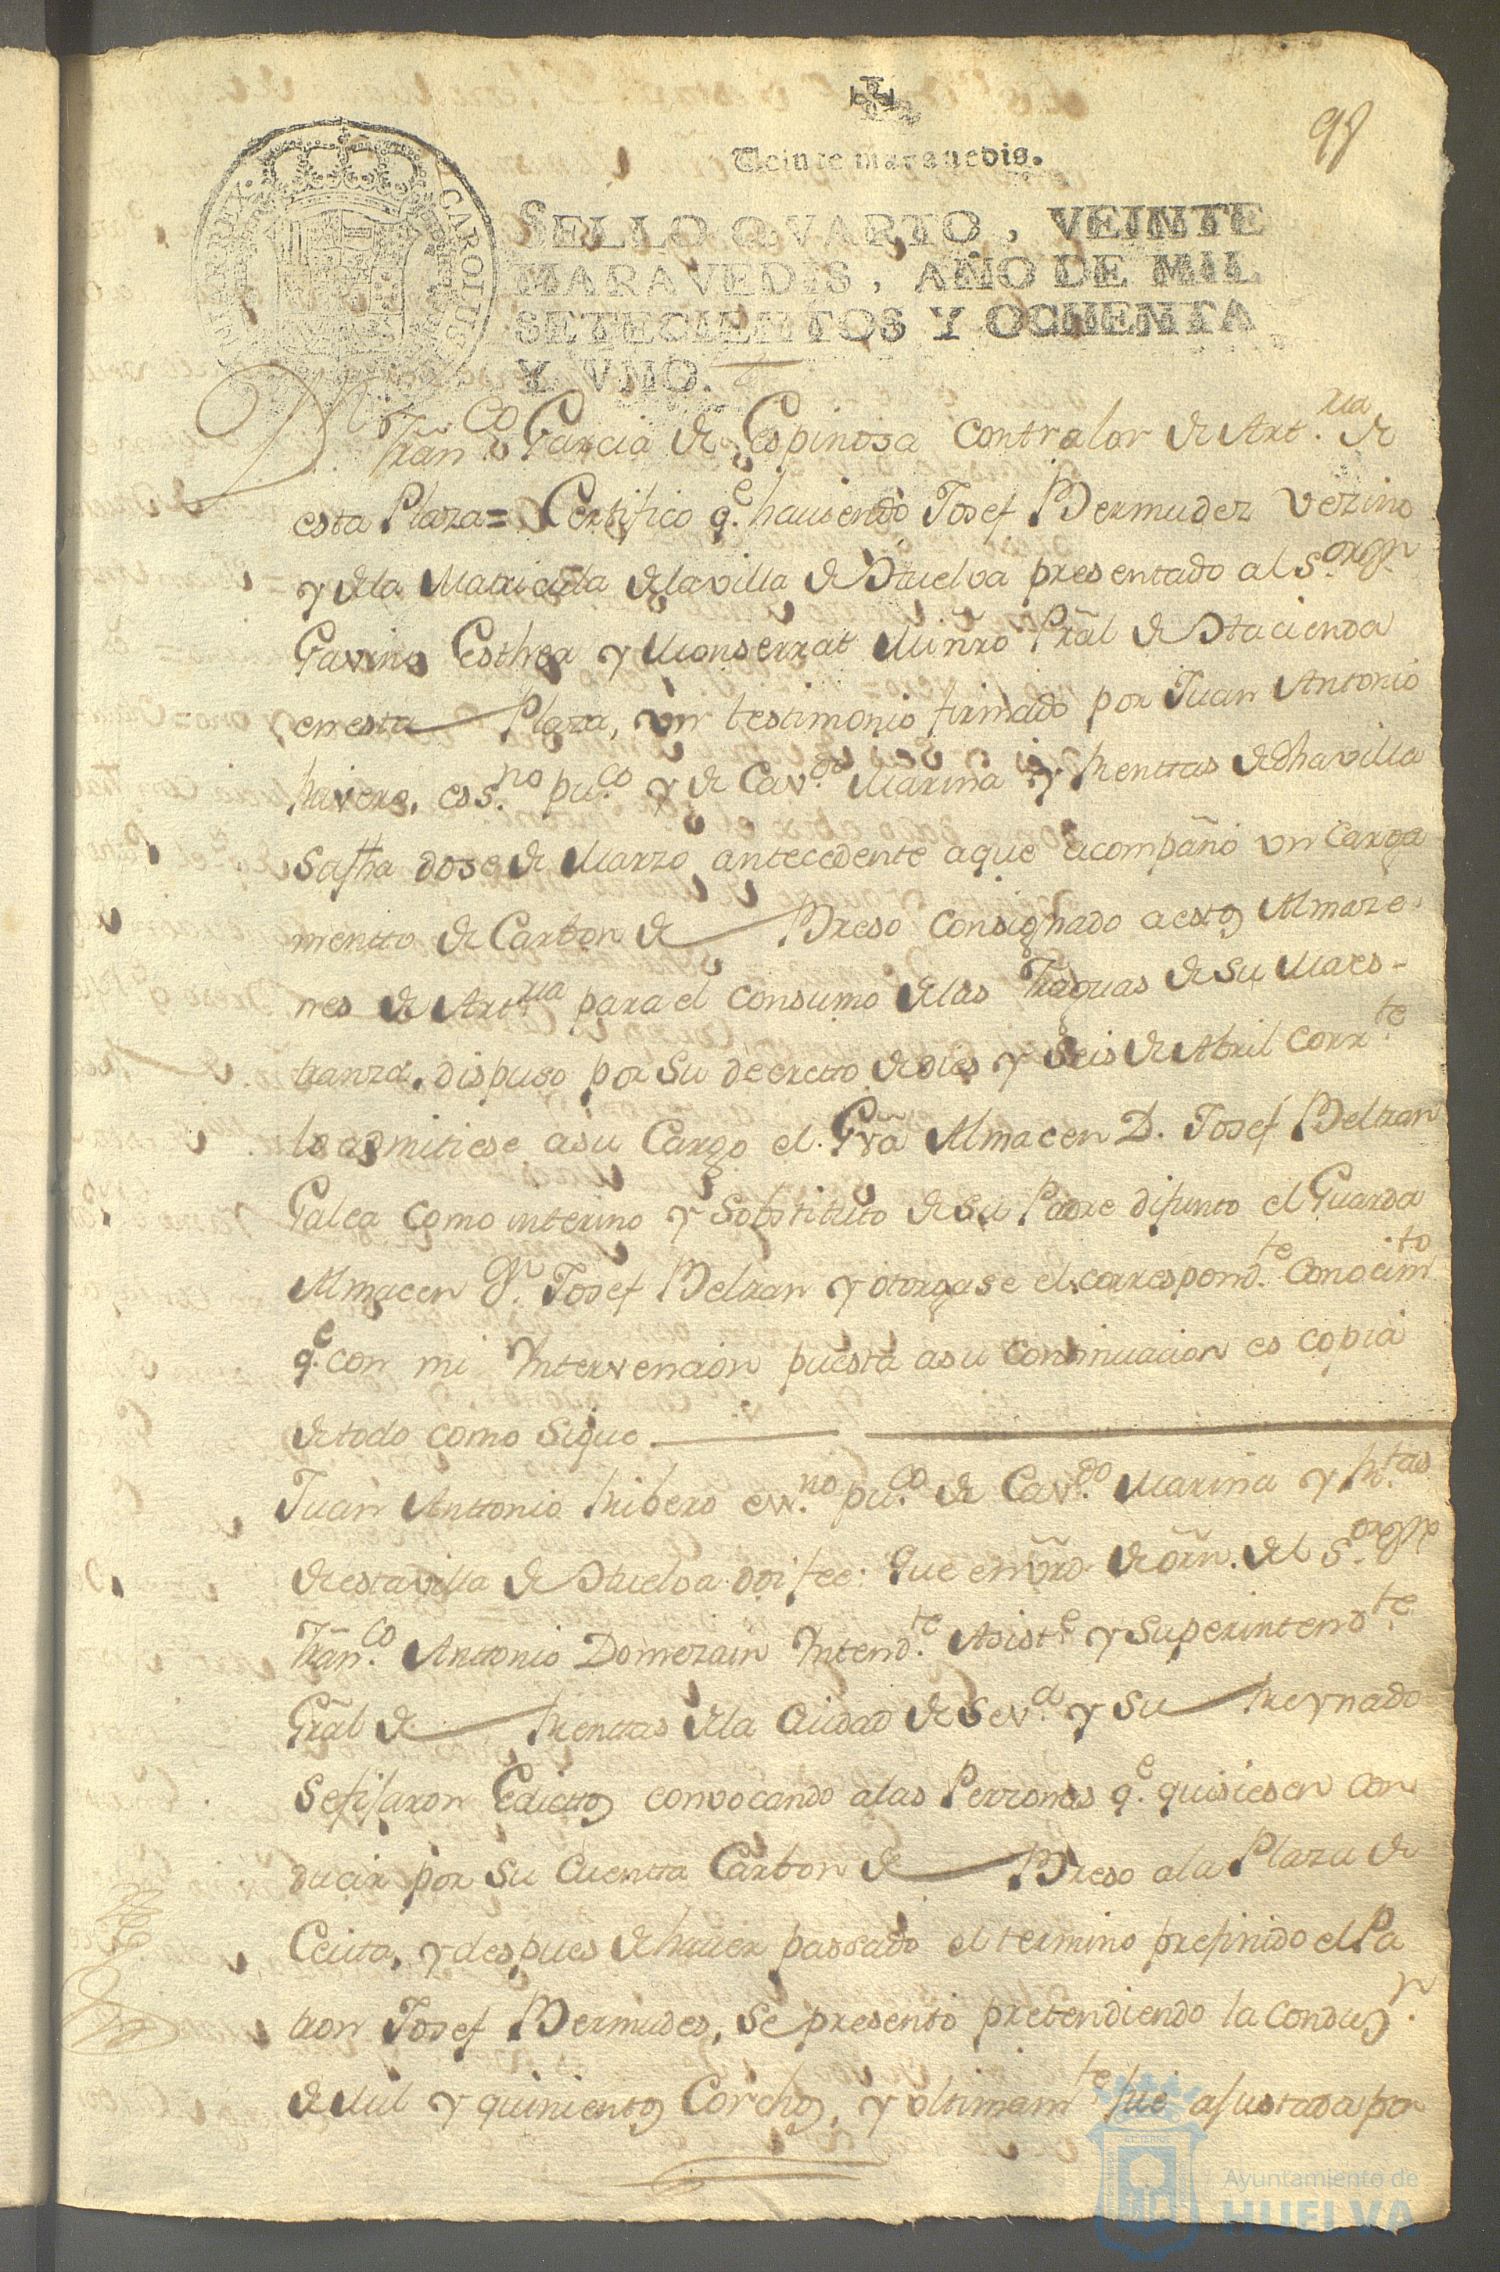 98
Veinte maravedis.
SELLO QVARTO, VEINTE
MARAVEDIS, AÑO DE MIL
SETECIENTOS Y OCHENTA
Y VNO.
CAROLUS
D.n Fran.co Garcia de Espinosa Contralor de Art.ria de
esta Plaza = Certifico q.e haviendo Josef Bermudez Vezino
y de la Matricula de la villa de Huelva presentado al S.or
Gavino Esthea y Monserrat Miñro Pral de Hacienda
en esta Plaza, un testimonio firmado por Juan Antonio
Rivero, ess.no pu.co y de Cav.do Marina y Renttas de dha villa
su fha dose de Marzo antecedente a que acompañó un Carga
mentto de Carbon de Breso Consignado a estos Almaze-
nes de Art.ria para el consumo de las Fraguas de su Maes-
tranza, dispuso por su decretto de dies y seis de Abril corr.te
lo admitiese a su Cargo el Grã Almacen D. Josef Beltran
Galea como interino y Sobstituto de su Padre difunto el Guarda
Almacen D.n Josef Beltran y otorgase el correspond.te Conocim.to
q.e con mi Intervencion puesta a su continuacion es copia
de todo como Sigue
Juan Antonio Ribero ess.no pu.co de Cav.do Marina y R.tas
de esta villa de Huelva doi fee: Que en vrd de orn. del S.or
Fran.co Antonio Domezain Intend.te Asist.e y Superintend.te
Gral de Renttas de la Ciudad de Sev.a y su Reynado
se fijaron Edicttos convocando a las Perzonas q.e quisiesen con
ducir por su Cuentta Carbon de Breso a la Plaza de
Ceuta, y despues de haver passado el termino prefinido el Pa
tron Josef Bermudes, se presentó pretendiendo la conduz.n
de Mil y quinientos Corchos, y ultimam.te fue ajustada por
Ayuntamiento de
HUELVA